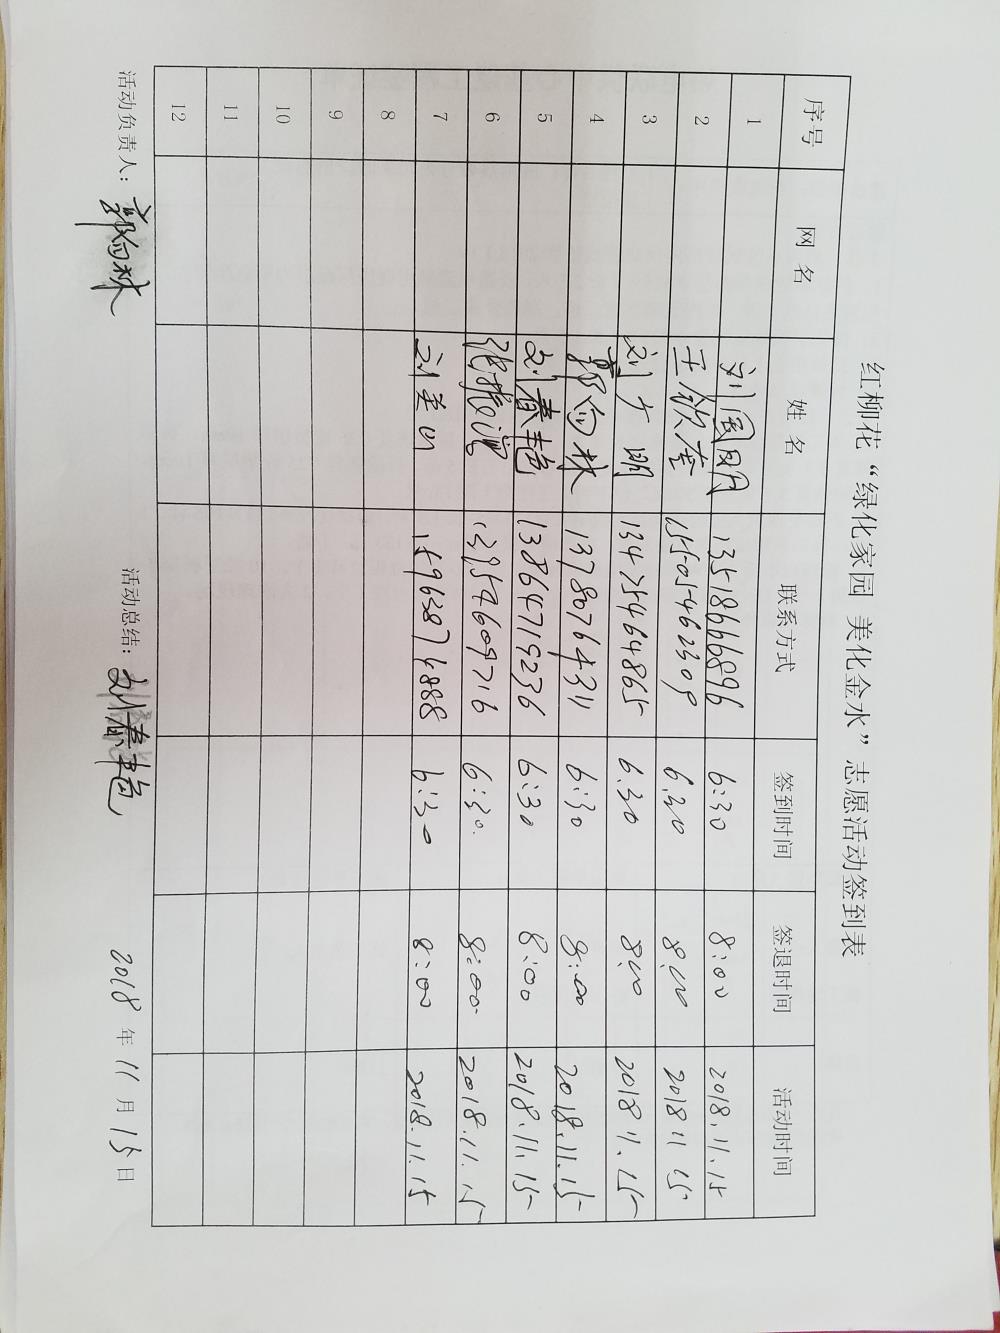 红柳花“绿化家园 美化金水”志愿活动签到表
序号 网名 姓名 联系方式 签到时间 签退时间 活动时间
1 刘国明 13518666896 6:30 8:00 2018.11.15
2 15505462309 6:30 8:00 2018.11.15
3 刘少明 13475464865 6:30 8:00 2018.11.15
4 郭向林 13780764311 6:30 8:00 2018.11.15
5 刘春艳 13864719236 6:30 8:00 2018.11.15
6 13954609716 6:30 8:00 2018.11.15
7 6:30 8:00 2018.11.15
8
9
10
11
12
活动负责人：郭向林 活动总结：刘春艳 2018年11月15日